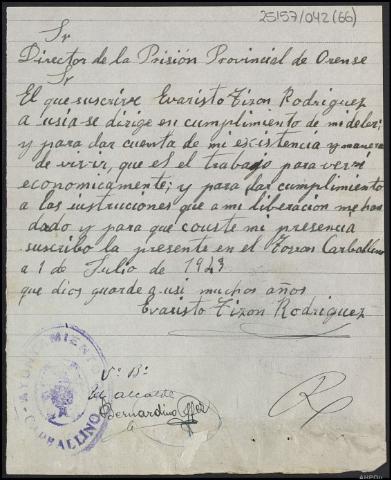 25157/042(66)
Sr
Director de la Prisión Provincial de Orense
Sr
El que suscrive Evaristo Tizon Rodriguez
a usia se dirige en cumplimiento de mi deber;
y para dar cuenta de mi existencia y manera
de vivir, que es el trabago para vervi
economicamente; y para dar cumplimiento
a las instrucciones que a mi liberacion me han
dado y para que conste mi presencia
suscribo la presente en el Carballino
a 1 de Julio de 1943
que dios guarde a usi muchos años
Evaristo Tizon Rodriguez
Vº Bº
El alcalde
Bernardino
AYUNTAMIENTO
CARBALLINO
AHPOu